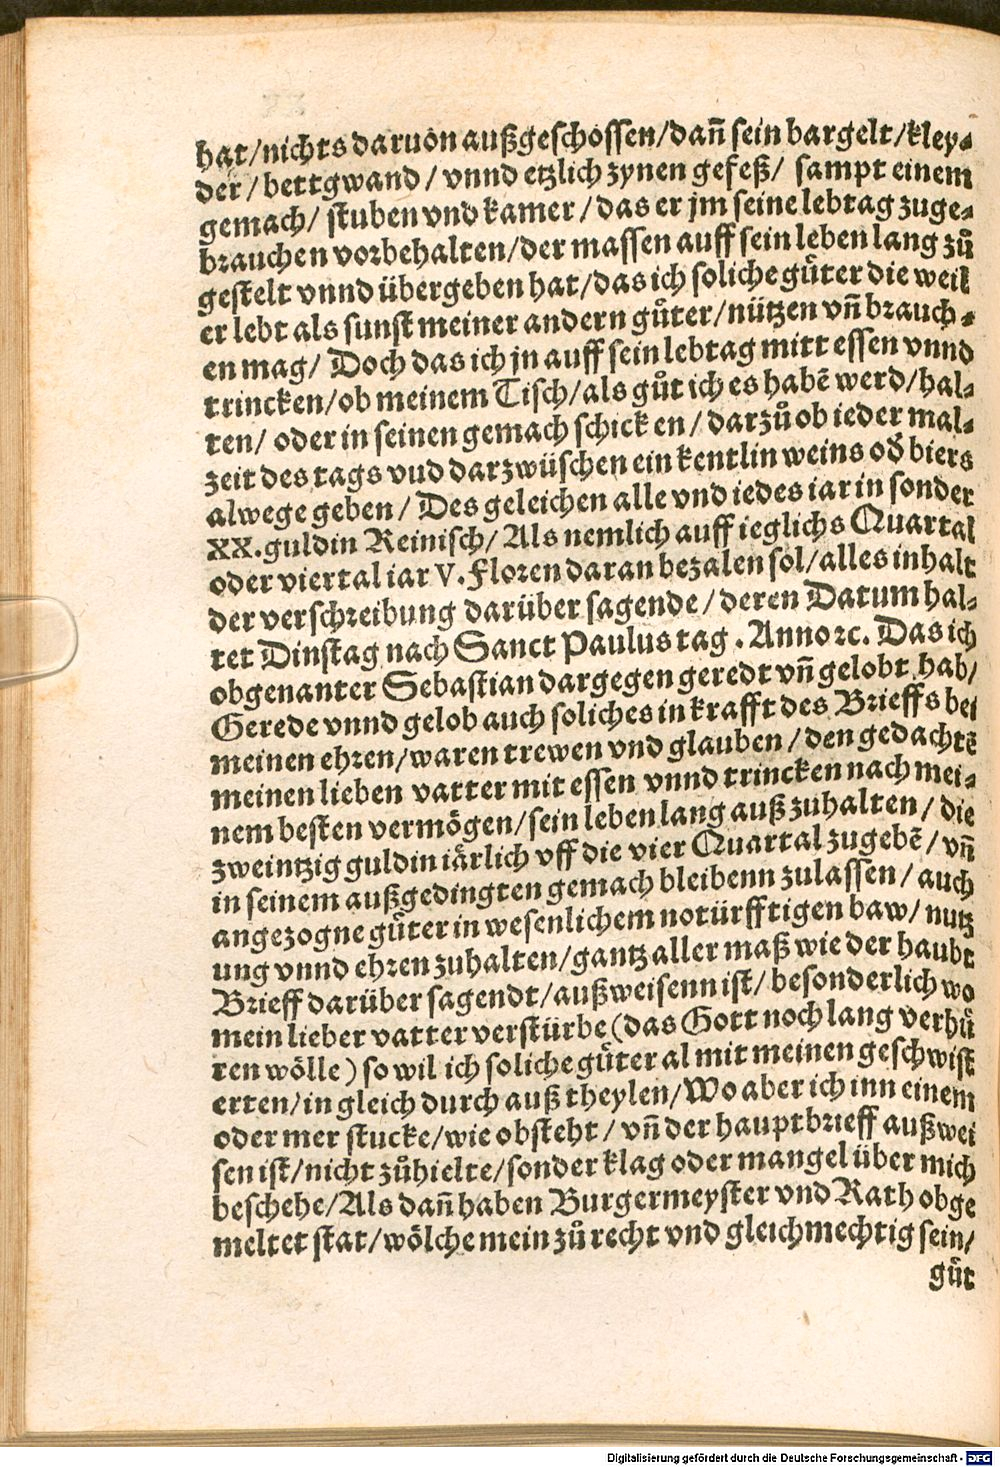 hat/nichts daruon außgeschossen/dañ sein bargelt/kley⸗
der/bettgwand/vnnd etzlich zynen gefeß/ sampt einem
gemach/ stuben vnd kamer/das er jm seine lebtag zuge⸗
brauchen vorbehalten/der massen auff sein leben lang zů
gestelt vnnd übergeben hat/das ich soliche gůter die weil
er lebt als sunst meiner andern gůter/nützen vñ brauch⸗
en mag/ Doch das ich jn auff sein lebtag mitt essen vnnd
trincken/ob meinem Tisch/als gůt ich es habẽ werd/hal⸗
ten/ oder in seinen gemach schicken/darzů ob ieder mal⸗
zeit des tags vud darzwüschen ein kentlin weins oď biers
alwege geben/ Des geleichen alle vnd iedes iar in sonder
XX.guldin Reinisch/ Als nemlich auff ieglichs Quartal
oder viertal iar V. Floren daran bezalen sol/alles inhalt
der verschreibung darüber sagende/deren Datum hal⸗
tet Dinstag nach Sanct Paulus tag . Anno ꝛc. Das ich
obgenanter Sebastian dargegen geredt vñ gelobt hab/
Gerede vnnd gelob auch soliches in krafft des Brieffs bei
meinen ehren/waren trewen vnd glauben/den gedachtẽ
meinen lieben vatter mit essen vnnd trincken nach mei⸗
nem besten vermögen/sein leben lang auß zuhalten/ die
zweintzig guldin iärlich vff die vier Quartal zugebẽ/vñ
in seinem außgedingten gemach bleibenn zulassen/auch
angezogne gůter in wesenlichem notürfftigen baw/nutz
ung vnnd ehren zuhalten/gantz aller maß wie der haubt
Brieff darüber sagendt/außweisenn ist/ besonderlich wo
mein lieber vatter verstürbe (das Gott noch lang verhů
ten wölle) so wil ich soliche gůter al mit meinen geschwist
erten/in gleich durch auß theylen/Wo aber ich inn einem
oder mer stucke/wie obsteht/ vñ der hauptbrieff außwei
sen ist/nicht zůhielte/sonder klag oder mangel über mich
beschehe/Als dañ haben Burgermeyster vnd Rath obge
meltet stat/wölche mein zů recht vnd gleich mechtig sein/
gůt
Digitalisierung gefördert durch die Deutsche Forschungsgemeinschaft - DFG